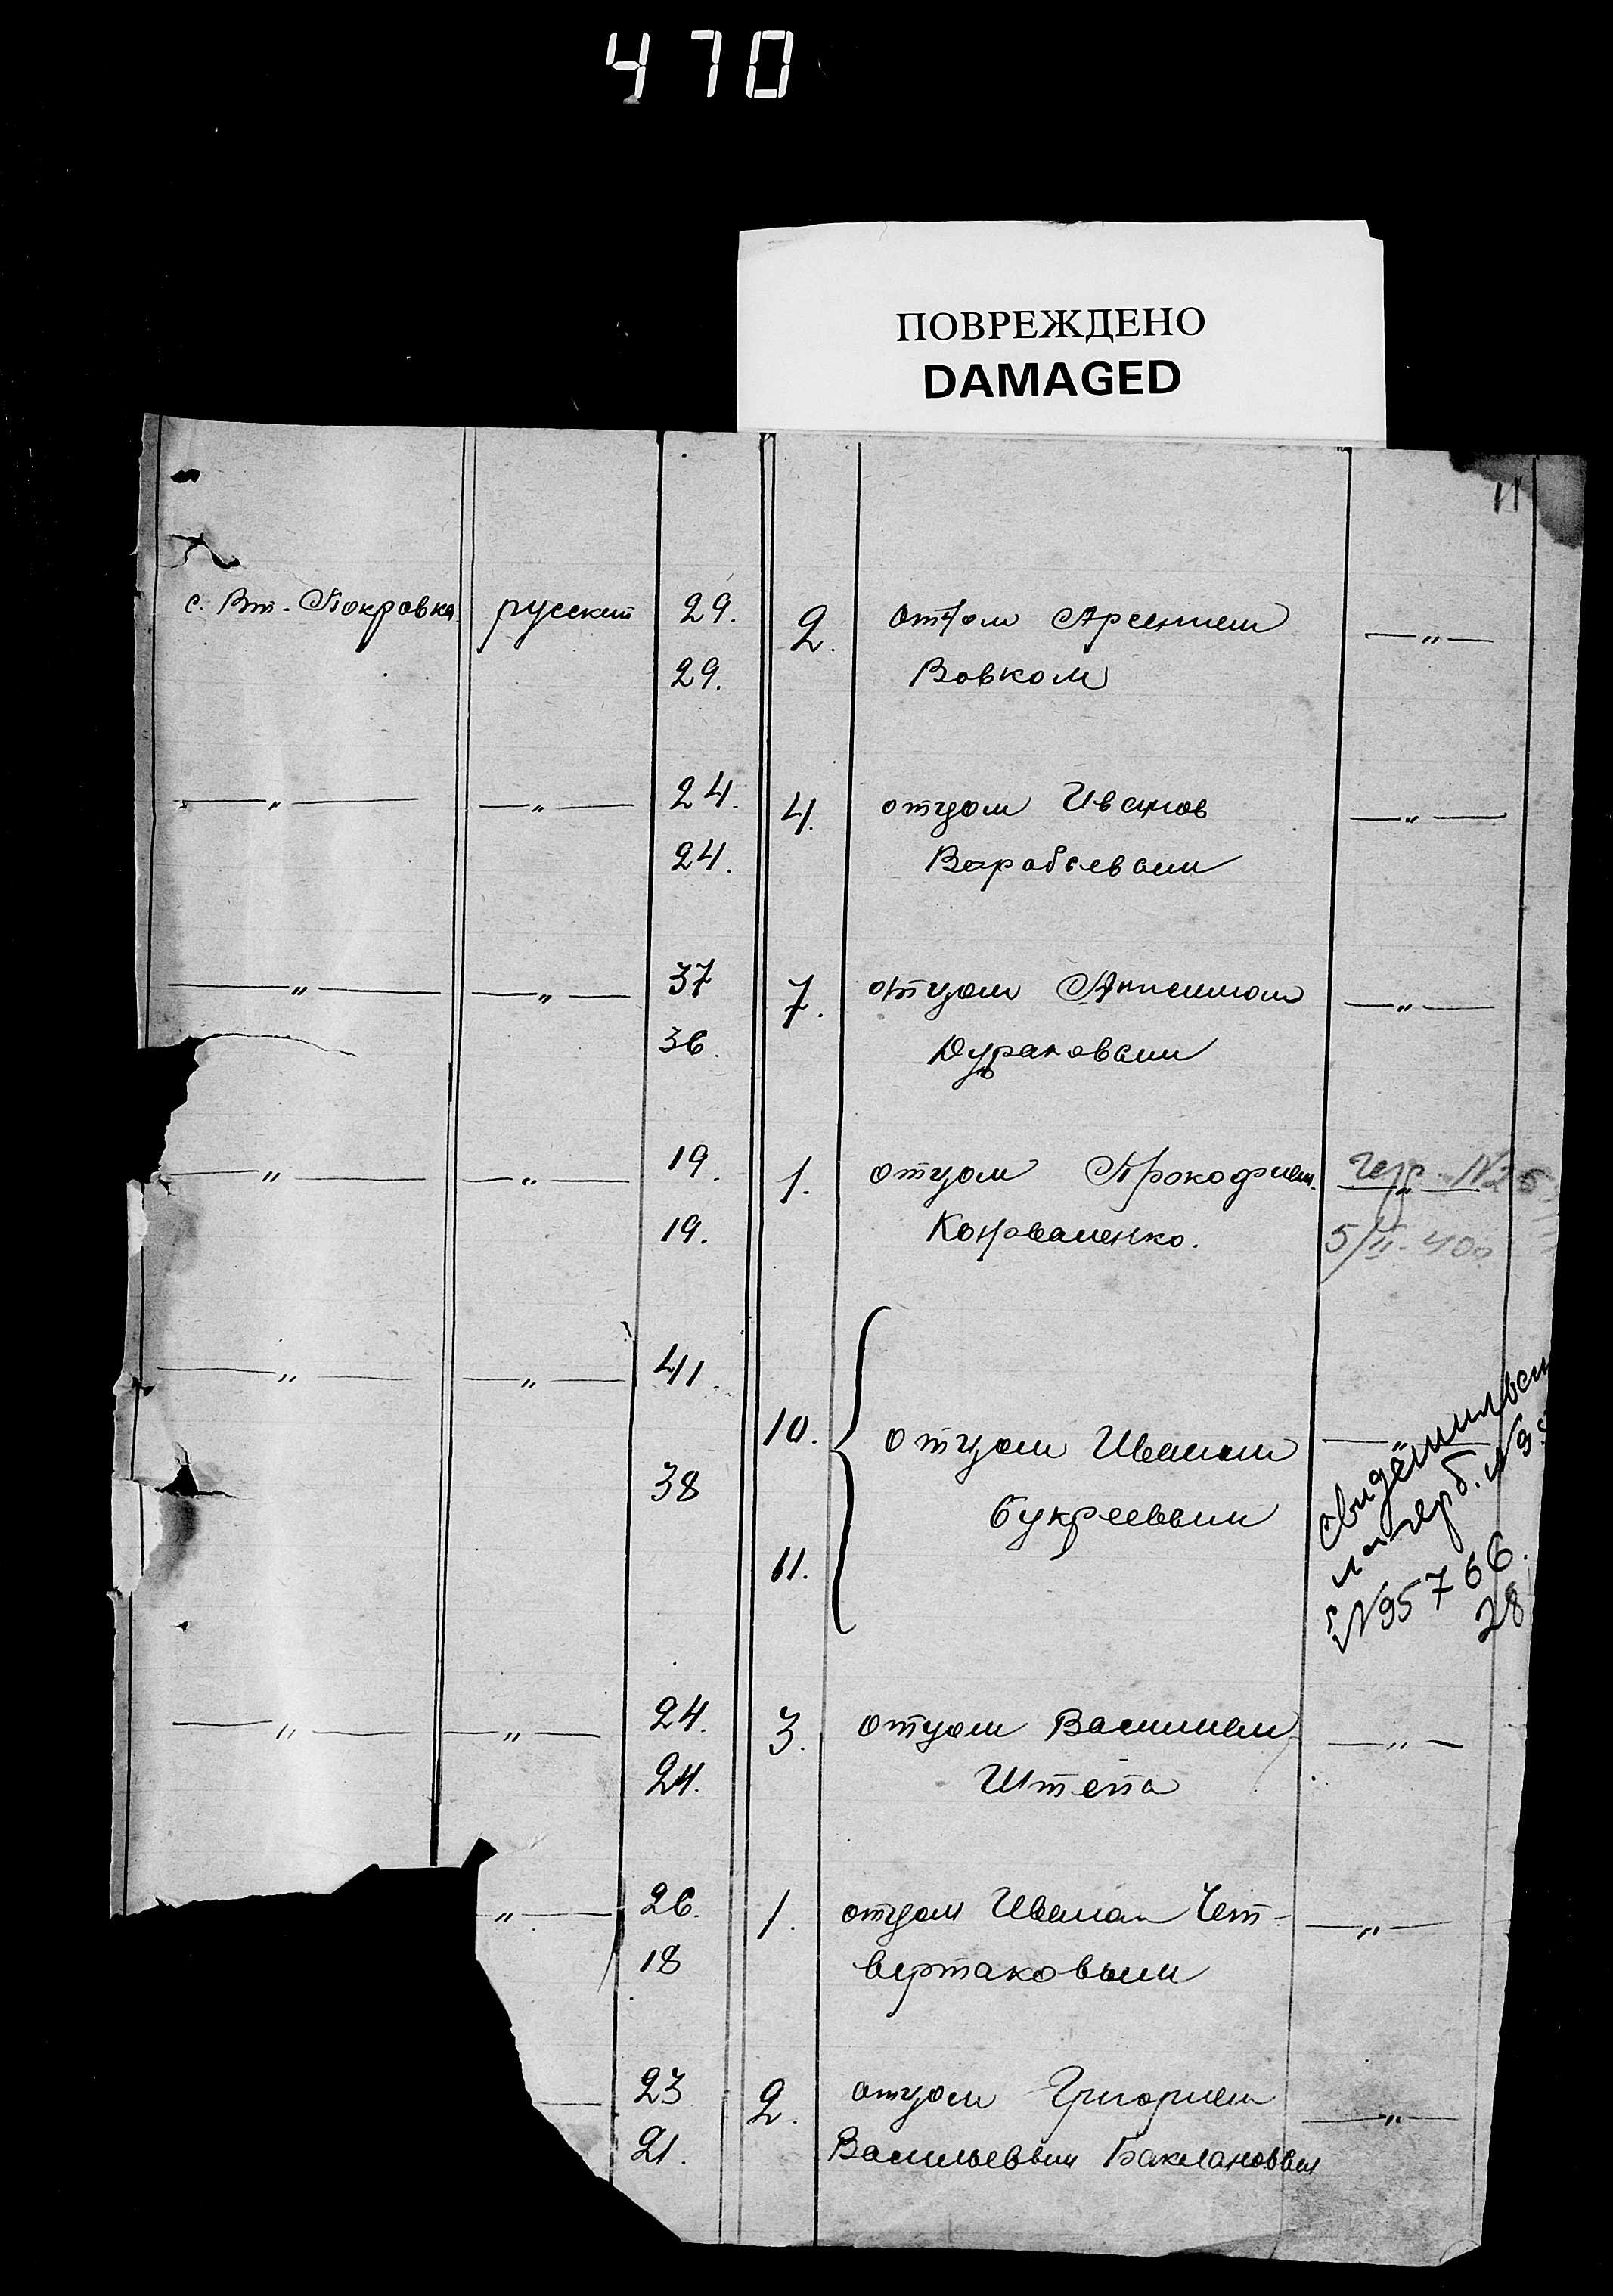 470
ПОВРЕЖДЕНО
DAMAGED
11
с. Вт.-Покровка русский 29. 2. отцом Арсением —„—
29. Вовком
—„— —„— 24. 4. отцом Иванов —„—
24. Воробьевым
—„— —„— 37 7. отцом Анисимом —„—
36. Дураковым
—„— —„— 19. 1. отцом Прокофием —„—
19. Коноваленко. 5/II-40
—„— —„— 41. 10. отцом Иваном —„—
38 11. Букреевым
свидетельст
герб.
№95766.
28
—„— —„— 24. 3. отцом Василием —„—
24. Штепа
—„— 26. 1. отцом Иваном Чет- —„—
18 вертаковым
— 23 2. отцом Григорием —„—
21. Васильевым Баклановым